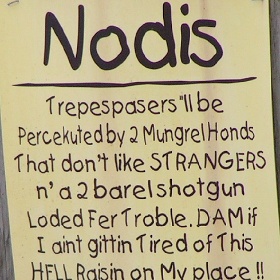 Nodis
Trepespasers "ll be
Percekuted by 2 Mungrel Honds
That don't like STRANGERS
n' a 2 barel shotgun
Loded Fer Troble. DAM if
I aint gittin Tired of This
HELL Raisin on My place !!